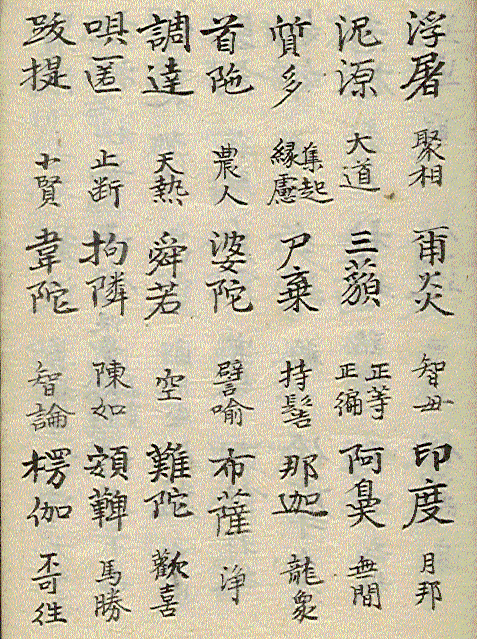 浮屠 聚相 爾炎 智母 印度 月邦
泥源 大道 三藐 正等正徧 阿鼻 無間
質多 集起縁慮 尸棄 持髻 那迦 龍象
首陁 農人 婆陀 譬喻 布薩 浄
調達 天熱 舜若 空 難陀 歡喜
唄匿 止断 拘隣 陳如 頞鞞 馬勝
跋提 小賢 韋陀 智論 楞伽 不可往